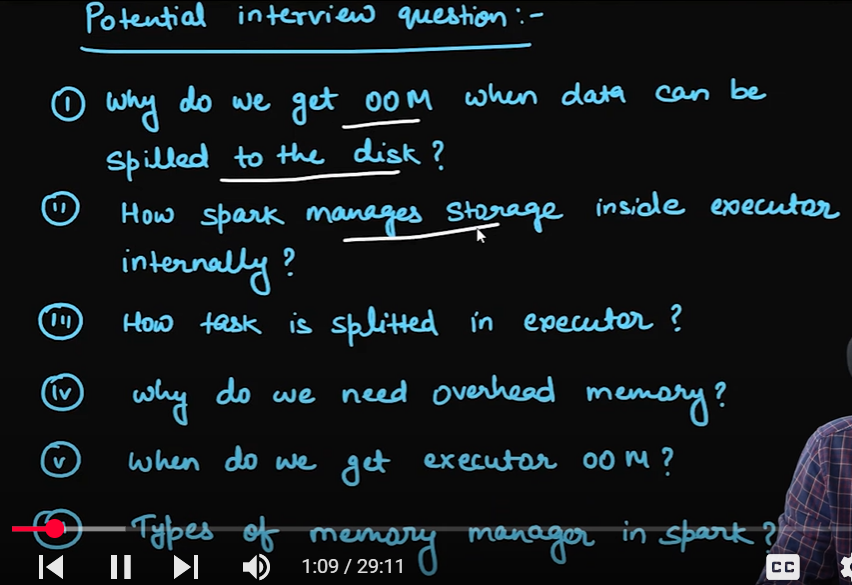 Potential interview question:-
(I) Why do we get OOM when data can be
spilled to the disk?
(II) How spark manages storage inside executor
internally?
(III) How task is splitted in executor?
(IV) Why do we need overhead memory?
(V) When do we get executor OOM?
Types of memory manager in spark?
1:09 / 29:11
CC